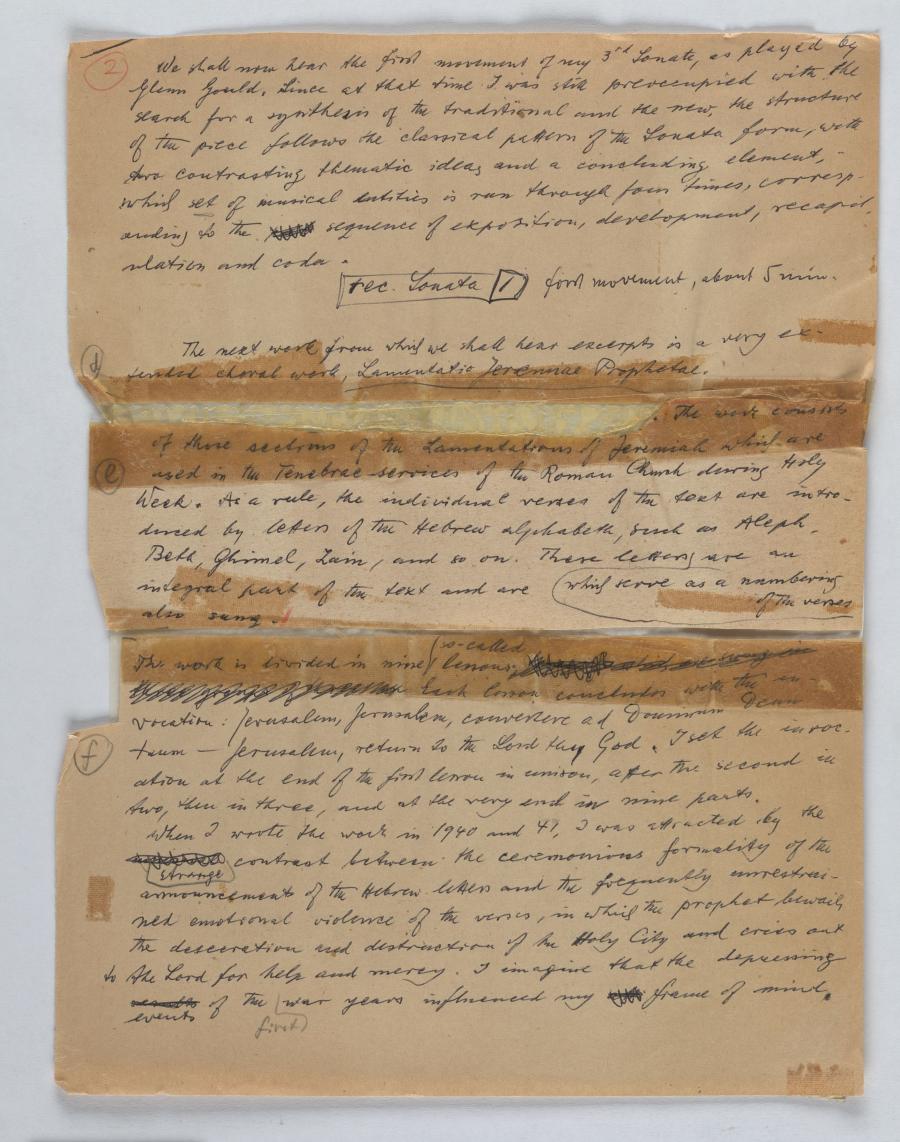 2
We shall now hear the first movement of my 3rd Sonata, as played by
Glenn Gould. Since at that time I was still preoccupied with the
search for a synthesis of the traditional and the new, the structure
of the piece follows the classical pattern of the Sonata form, with
two contrasting thematic ideas and a concluding element,
which set of musical entities is run through four times, corresp-
onding to the sequence of exposition, development, recapit-
ulation and coda.
rec. Sonata 1 first movement, about 5 min.
The next work from which we shall hear excerpts is a very ex-
d
tended choral work, Lamentatio Jeremiae Prophetae.
. The work consists
of those sections of the Lamentations of Jeremiah which are
e
used in the Tenebrae services of the Roman Church during Holy
Week. As a rule, the individual verses of the text are intro-
duced by letters of the Hebrew alphabeth, such as Aleph,
Beth, Ghimel, Zain, and so on. These letters are an
integral part of the text and are (which serve as a numbering
of the verses
also sung.
so-called
The work is divided in nine lessons, which are sung in
Each lesson concludes with the in-
vocation: Jerusalem, Jerusalem, convertere ad Dominum Deum
f
tuum — Jerusalem, return to the Lord thy God. I set the invoc-
ation at the end of the first lesson in unison, after the second in
two, then in three, and at the very end in nine parts.
When I wrote the work in 1940 and 41, I was attracted by the
contrast between the ceremonious formality of the
strange
announcements of the Hebrew letters and the frequently unrestrai-
ned emotional violence of the verses, in which the prophet bewails
the desecration and destruction of the Holy City and cries out
to the Lord for help and mercy. I imagine that the depressing
of the war years influenced my frame of mind.
events
first